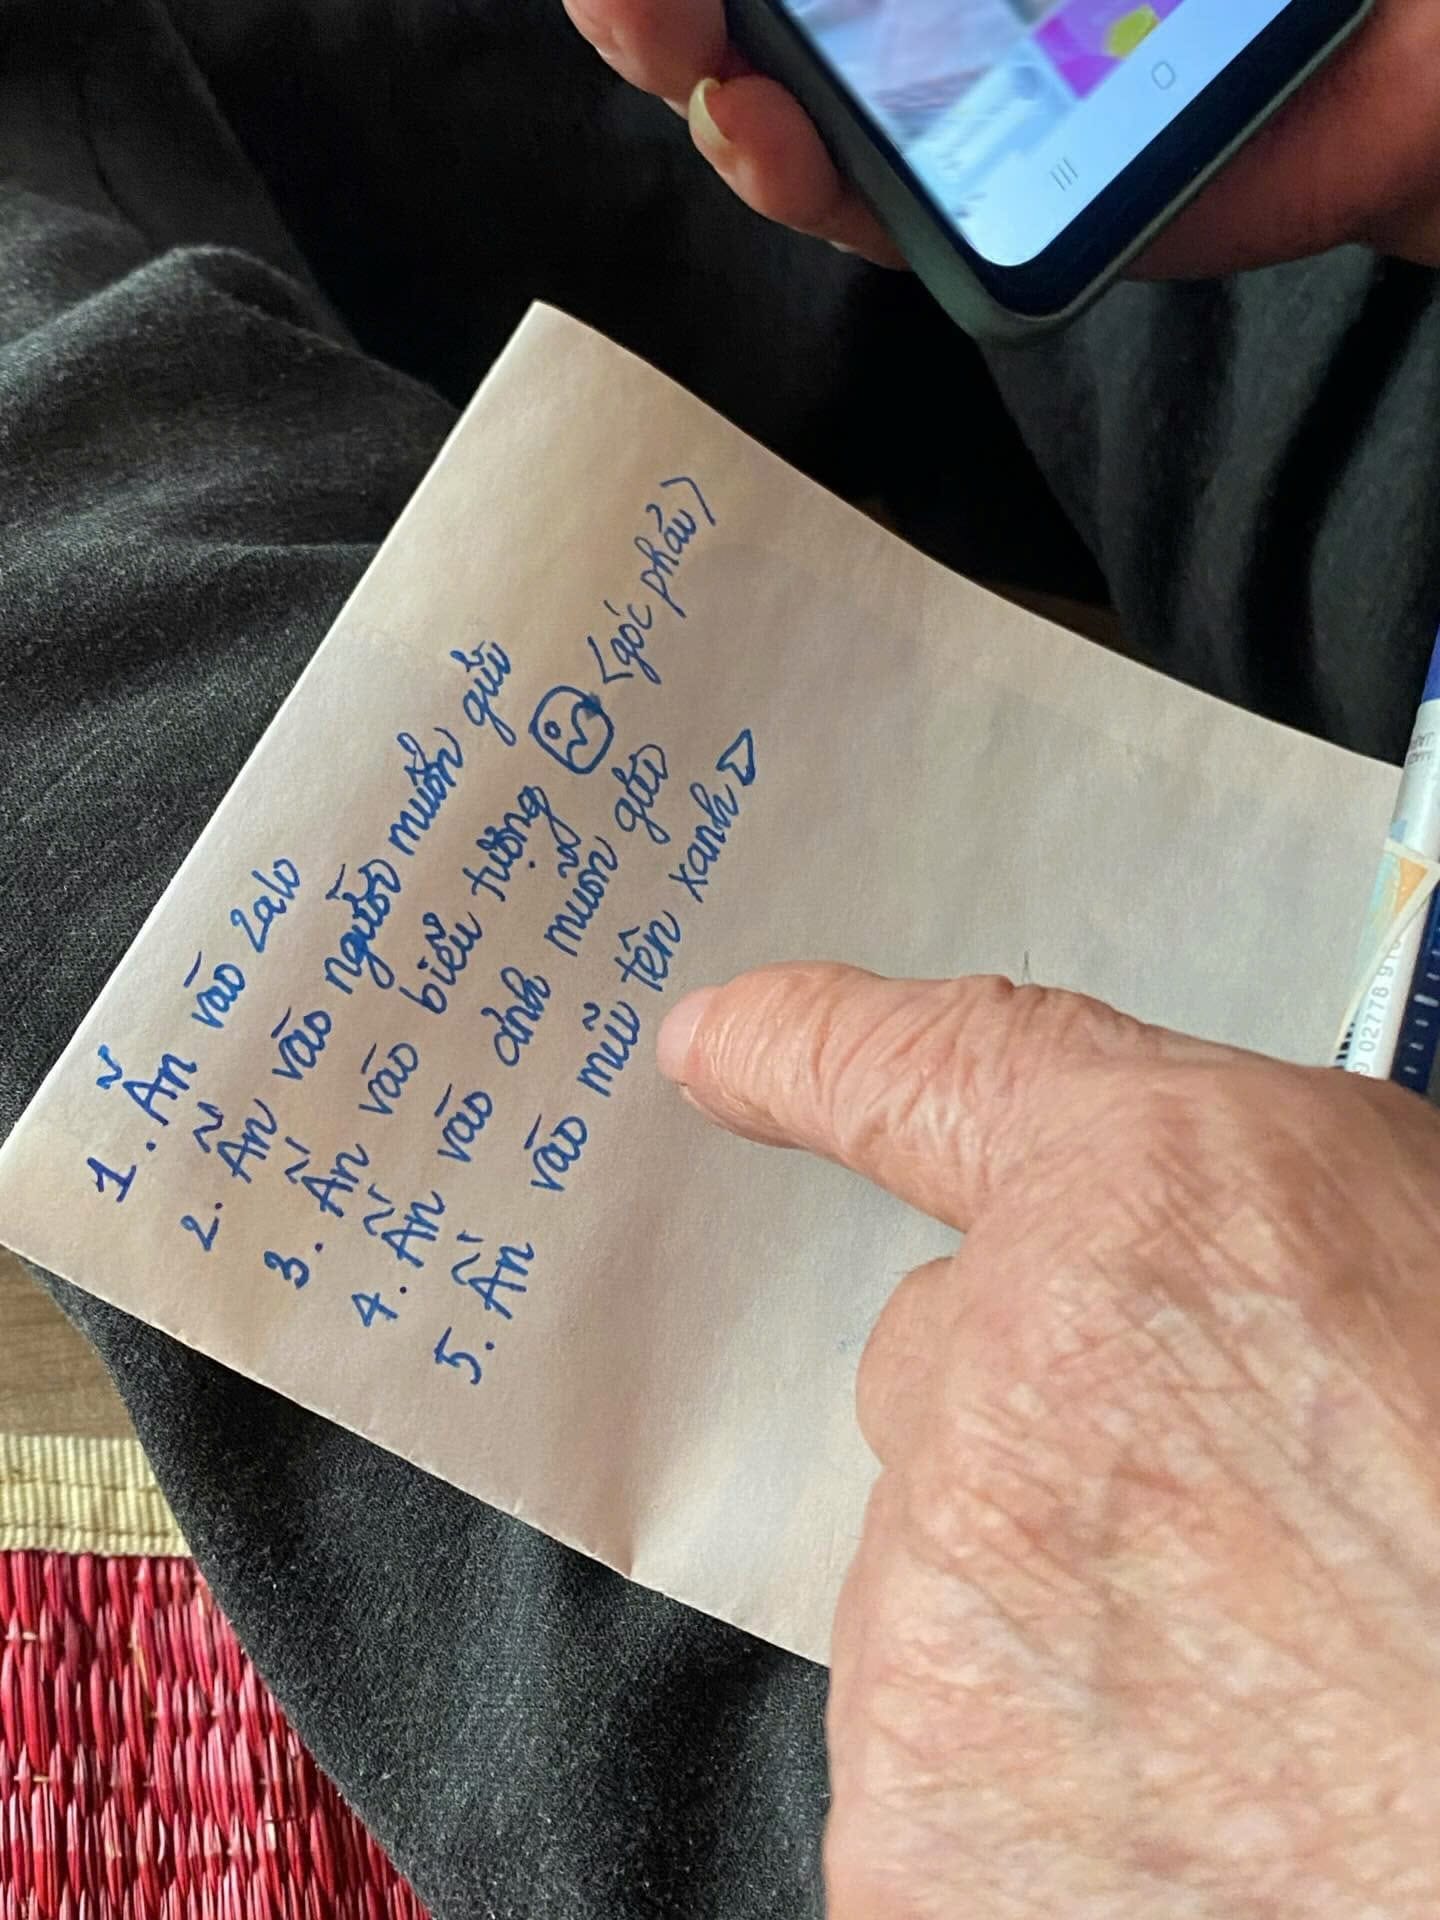 1. Ấn vào Zalo
2. Ấn vào người muốn gửi
3. Ấn vào biểu tượng (góc phải)
4. Ấn vào ảnh muốn gửi
5. Ấn vào mũi tên xanh